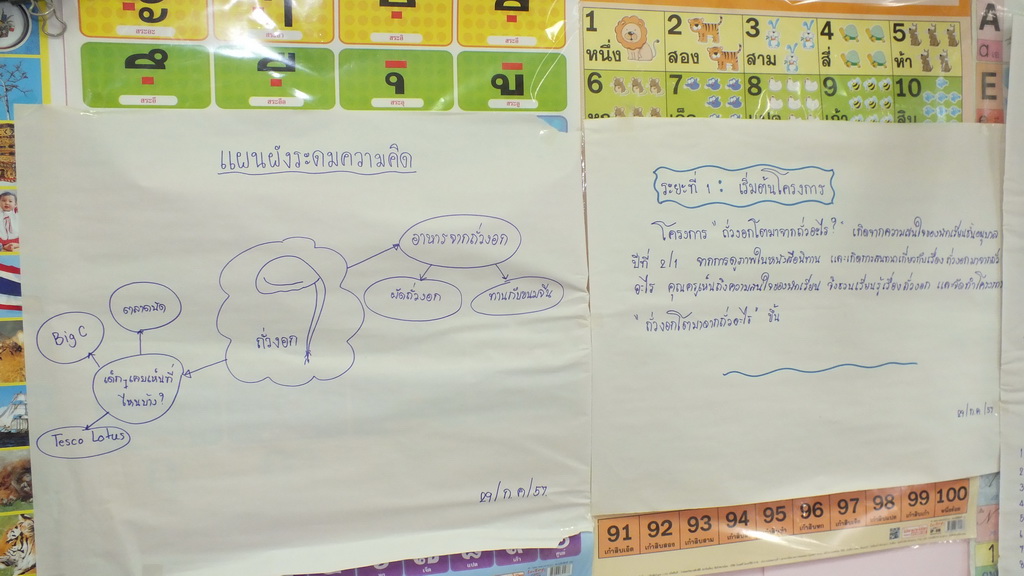 สระอะ
สระอิ
สระอี
สระอึ
สระอือ
สระอุ
สระอู
1 2 3 4 5
หนึ่ง สอง สาม สี่ ห้า
6 7 8 9 10
A
a
E
แผนผังระดมความคิด
อาหารจากถั่วงอก
ผัดถั่วงอก
ทานกับขนมจีน
ถั่วงอก
ตลาดนัด
Big C
เด็กๆเคยเห็นที่
ไหนบ้าง?
Tesco Lotus
29/ก.ค/57
ระยะที่ 1 : เริ่มต้นโครงการ
โครงการ "ถั่วงอกโตมาจากถั่วอะไร?" เกิดจากความสนใจของนักเรียนชั้นอนุบาล
ปีที่ 2/1 จากการดูภาพในหนังสือนิทาน และเกิดการสนทนาเกี่ยวกับเรื่อง ถั่วงอกมาจากถั่ว
อะไร คุณครูเห็นถึงความสนใจของนักเรียน จึงชวนเรียนรู้เรื่องถั่วงอก และจัดทำโครงการ
"ถั่วงอกโตมาจากถั่วอะไร" ขึ้น
29/ก.ค/57
91 92 93 94 95 96 97 98 99 100
เก้าสิบเอ็ด เก้าสิบสอง เก้าสิบสาม เก้าสิบสี่ เก้าสิบห้า เก้าสิบหก เก้าสิบเจ็ด เก้าสิบแปด เก้าสิบเก้า หนึ่งร้อย